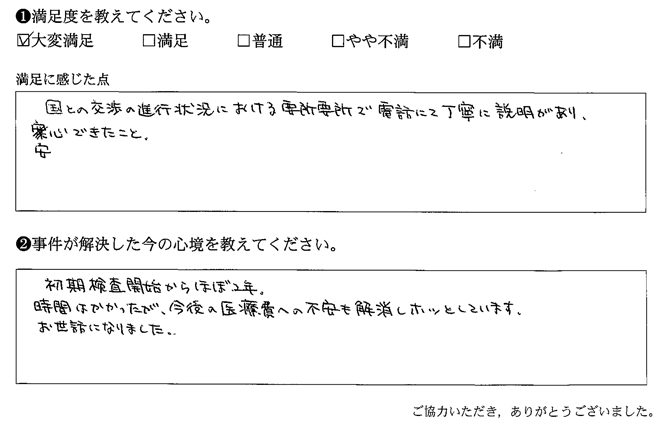 ❶満足度を教えてください。
☑大変満足 □満足 □普通 □やや不満 □不満
満足に感じた点
国との交渉の進行状況における要所要所で電話にて丁寧に説明があり、
心できたこと。
安
❷事件が解決した今の心境を教えてください。
初期検査開始からほぼ2年。
時間はかかったが、今後の医療費への不安も解消しホッとしています。
お世話になりました。
ご協力いただき，ありがとうございました。